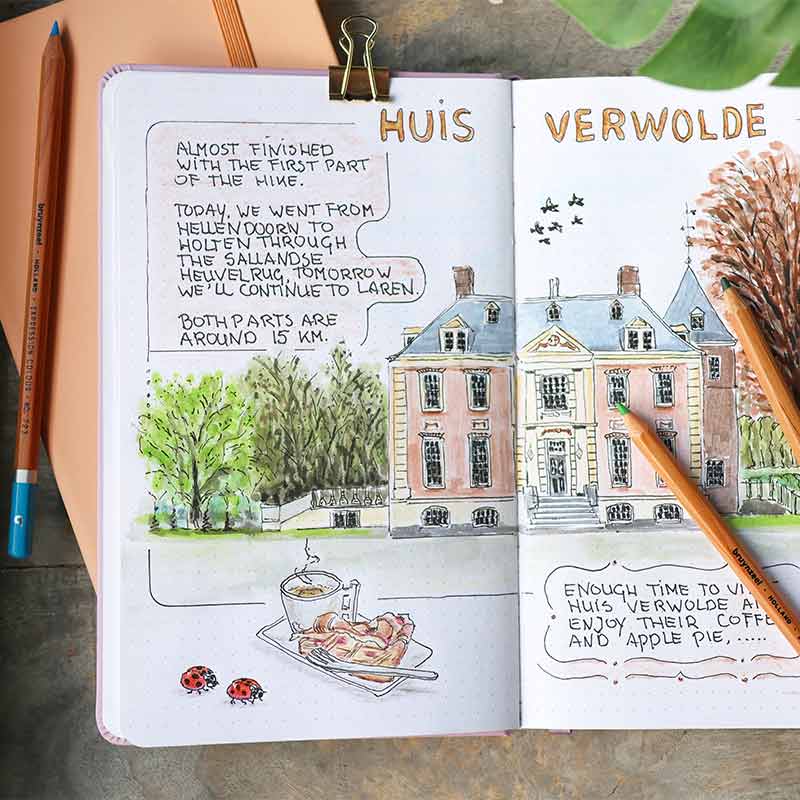 HUIS VERWOLDE
ALMOST FINISHED
WITH THE FIRST PART
OF THE HIKE.
TODAY, WE WENT FROM
HELLENDOORN TO
HOLTEN THROUGH
THE SALLANDSE
HEUVELRUG, TOMORROW
WE'LL CONTINUE TO LAREN.
BOTH PARTS ARE
AROUND 15 KM.
ENOUGH TIME TO
HUIS VERWOLDE
ENJOY THEIR COFFE
AND APPLE PIE, .....
bruynzeel • HOLLAND • EXPRESSION COLOUR
bruynzeel • HOLLAND